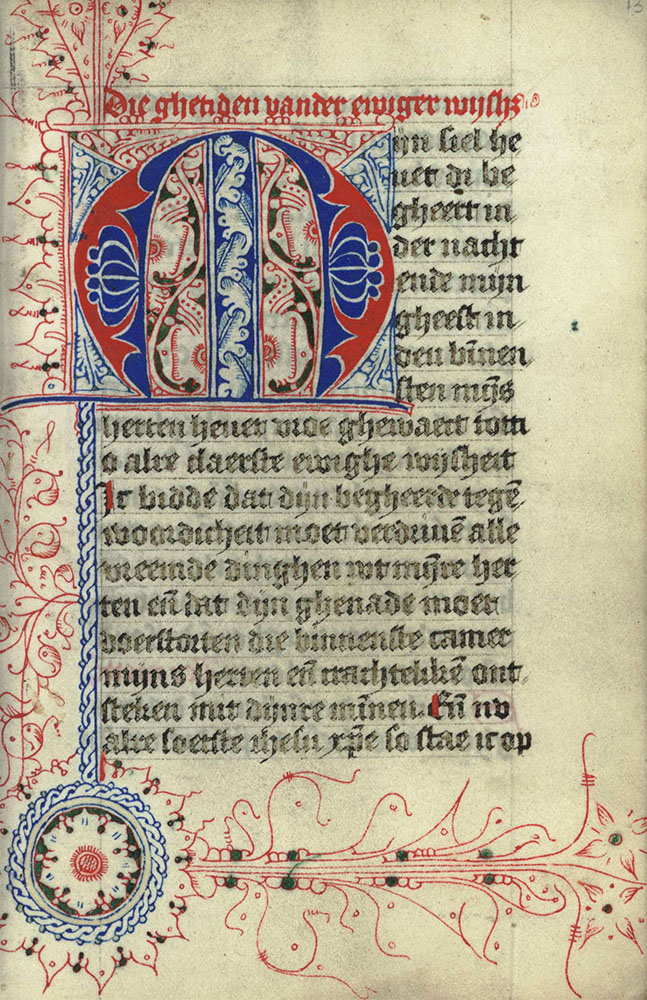 13
Die ghetiden vander ewiger wijsh
Mijn siel he
uet di be
gheert in
der nacht
ende mijn
gheest in
den bīnen
sten mijns
herten heuet
o alre claerste ewighe wijsheit
Ic bidde dat dijn begheerde tegē
woordicheit moet verdriuē alle
vreemde dinghen wt mijre her
ten eñ dat dijn ghenade moet
voerstorten die binnenste camer
mijns herten eñ crachtelikē ont
steken mit dijnre mīnen. Eñ nv
alre soetste ihesu xp̄e so stae ic op